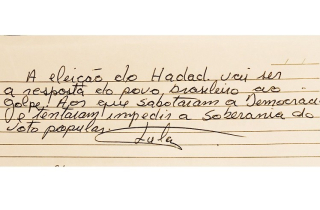 A eleição do Hadad vai ser
a resposta do povo brasileiro ao
golpe! Aos que sabotaram a Democracia
e tentaram impedir a soberania do
voto popular.
Lula